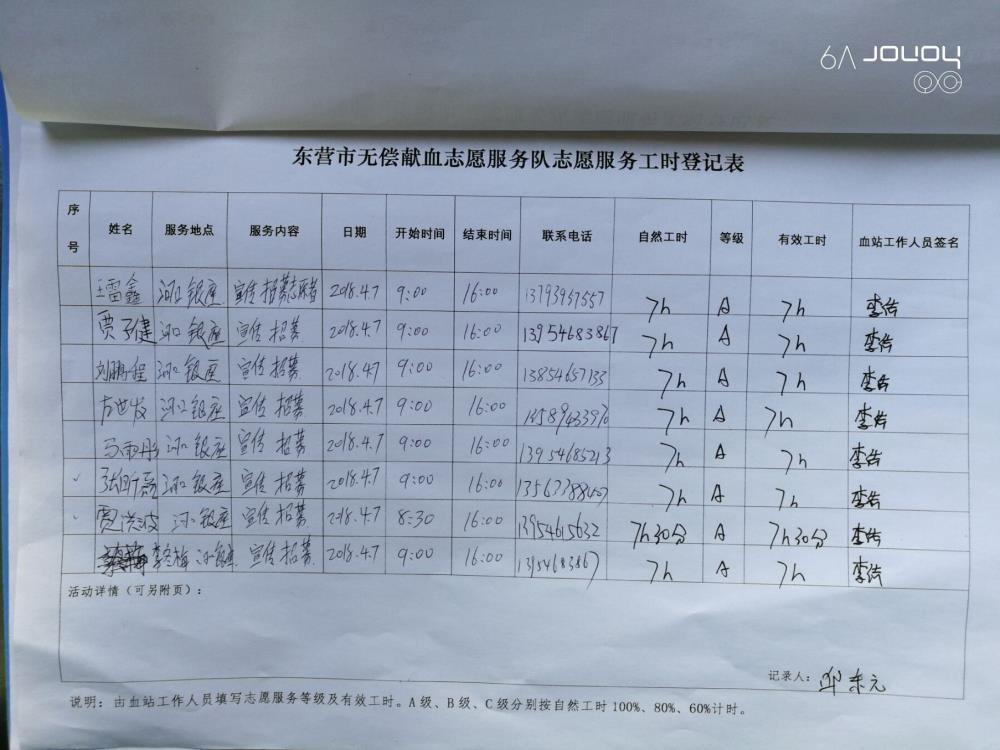 6A JOUOY
东营市无偿献血志愿服务队志愿服务工时登记表
序号 姓名 服务地点 服务内容 日期 开始时间 结束时间 联系电话 自然工时 等级 有效工时 血站工作人员签名
王雷鑫 河口银座 宣传招募志愿者 2018.4.7 9:00 16:00 13793957557 7h A 7h
贾子健 河口银座 宣传招募 2018.4.7 9:00 16:00 13954683867 7h A 7h
刘鹏程 河口银座 宣传招募 2018.4.7 9:00 16:00 13854657133 7h A 7h
河口银座 宣传招募 2018.4.7 9:00 16:00 7h A 7h
马雨彤 河口银座 宣传招募 2018.4.7 9:00 16:00 13954685213 7h A 7h
河口银座 宣传招募 2018.4.7 9:00 16:00 7h A 7h
贾洪波 河口银座 宣传招募 2018.4.7 8:30 16:00 13954615632 7h30分 A 7h30分
李冬梅 河口银座 宣传招募 2018.4.7 9:00 16:00 13954683867 7h A 7h
活动详情（可另附页）：
记录人：邱东元
说明：由血站工作人员填写志愿服务等级及有效工时。A级、B级、C级分别按自然工时100%、80%、60%计时。